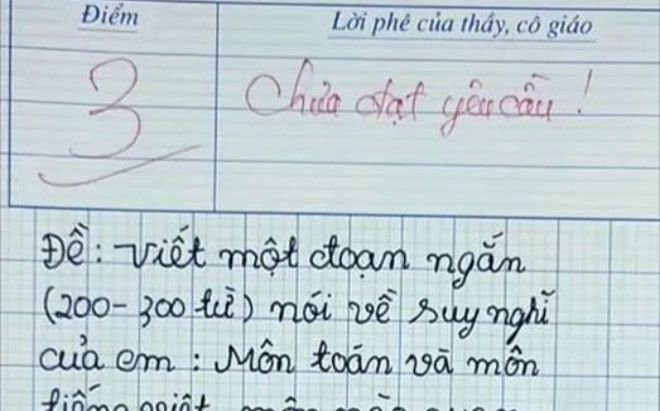 Điểm
Lời phê của thầy, cô giáo
3
Chưa đạt yêu cầu!
Đề: Viết một đoạn ngắn
(200-300 từ) nói về suy nghĩ
của em: Môn toán và môn